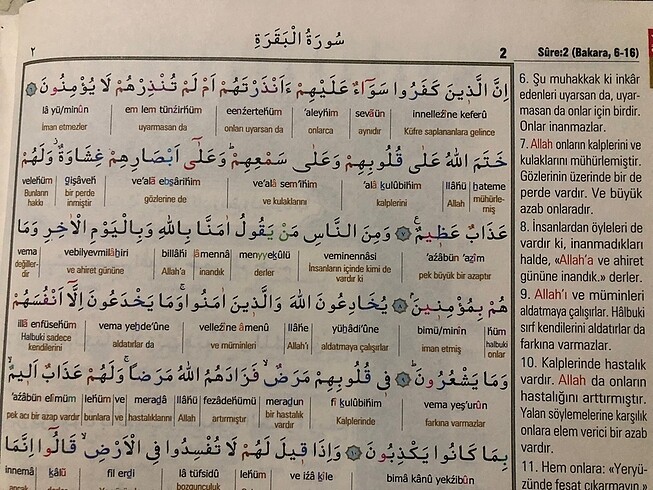 ٢
سُورَةُ الْبَقَرَةِ
2
Sûre:2 (Bakara, 6-16)
اِنَّ الَّذٖينَ كَفَرُوا سَوَٓاءٌ عَلَيْهِمْ ءَاَنْذَرْتَهُمْ اَمْ لَمْ تُنْذِرْهُمْ لَا يُؤْمِنُونَ ﴿٦﴾
innelleẕîne keferû sevâün ‘aleyhim eenẕertehüm em lem tünẕirhüm lâ yü/minûn
Küfre saplananlara gelince aynıdır onlarca onları uyarsan da uyarmasan da iman etmezler
خَتَمَ اللّٰهُ عَلٰى قُلُوبِهِمْ وَعَلٰى سَمْعِهِمْ وَعَلٰٓى اَبْصَارِهِمْ غِشَاوَةٌ وَلَهُمْ
ḣateme llâhü ‘alâ ḳulûbihim ve‘alâ sem‘ihim ve‘alâ ebṣârihim gişâveh velehüm
mühürlemiş Allah kalplerini ve kulaklarını gözlerine de bir perde inmiştir Bunların hakkı
عَذَابٌ عَظٖيمٌ ﴿٧﴾ وَمِنَ النَّاسِ مَنْ يَقُولُ اٰمَنَّا بِاللّٰهِ وَبِالْيَوْمِ الْاٰخِرِ وَمَا
‘aẕâbün ‘aẓîm veminennâsi menyyeḳûlü âmennâ billâhi vebilyevmilâḣiri vema
pek büyük bir azaptır İnsanların içinde kimi de vardır ki derler inandık Allah'a ve ahiret gününe değillerdir
هُمْ بِمُؤْمِنٖينَ ﴿٨﴾ يُخَادِعُونَ اللّٰهَ وَالَّذٖينَ اٰمَنُوا وَمَا يَخْدَعُونَ اِلَّٓا اَنْفُسَهُمْ
hüm bimü/minîn yüḣâdi‘ûne llâhe velleẕîne âmenû vema yeḣde‘ûne illâ enfüsehüm
halbuki onlar iman etmiş aldatmaya çalışırlar Allah'ı ve müminleri aldatırlar da Halbuki sadece kendilerini
وَمَا يَشْعُرُونَ ﴿٩﴾ فٖى قُلُوبِهِمْ مَرَضٌ فَزَادَهُمُ اللّٰهُ مَرَضًا وَلَهُمْ عَذَابٌ اَلٖيمٌ
vema yeş‘urûn fî ḳulûbihim meraḍun fezâdehümü llâhü meraḍâ ve lehüm ‘aẕâbün elîmüm
farkına varmazlar Kalplerinde bir hastalık vardır artırmıştır Allah hastalıklarını ve bunlara pek acı bir azap vardır
بِمَا كَانُوا يَكْذِبُونَ ﴿١٠﴾ وَاِذَا قٖيلَ لَهُمْ لَا تُفْسِدُوا فِى الْاَرْضِ قَالُٓوا اِنَّمَا
bimâ kânû yekẕibûn ve iẕâ ḳîle lehüm lâ tüfsidû fil erḍi ḳâlû innemâ
6. Şu muhakkak ki inkâr
edenleri uyarsan da, uyar-
masan da onlar için birdir.
Onlar inanmazlar.
7. Allah onların kalplerini ve
kulaklarını mühürlemiştir.
Gözlerinin üzerinde bir de
perde vardır. Ve büyük
azab onlaradır.
8. İnsanlardan öyleleri de
vardır ki, inanmadıkları
halde, «Allah'a ve ahiret
gününe inandık.» derler.
9. Allah'ı ve müminleri
aldatmaya çalışırlar. Hâlbuki
sırf kendilerini aldatırlar da
farkına varmazlar.
10. Kalplerinde hastalık
vardır. Allah da onların
hastalığını arttırmıştır.
Yalan söylemelerine karşılık
onlara elem verici bir azab
vardır.
11. Hem onlara: «Yeryü-
zünde fesat çıkarmayın.»